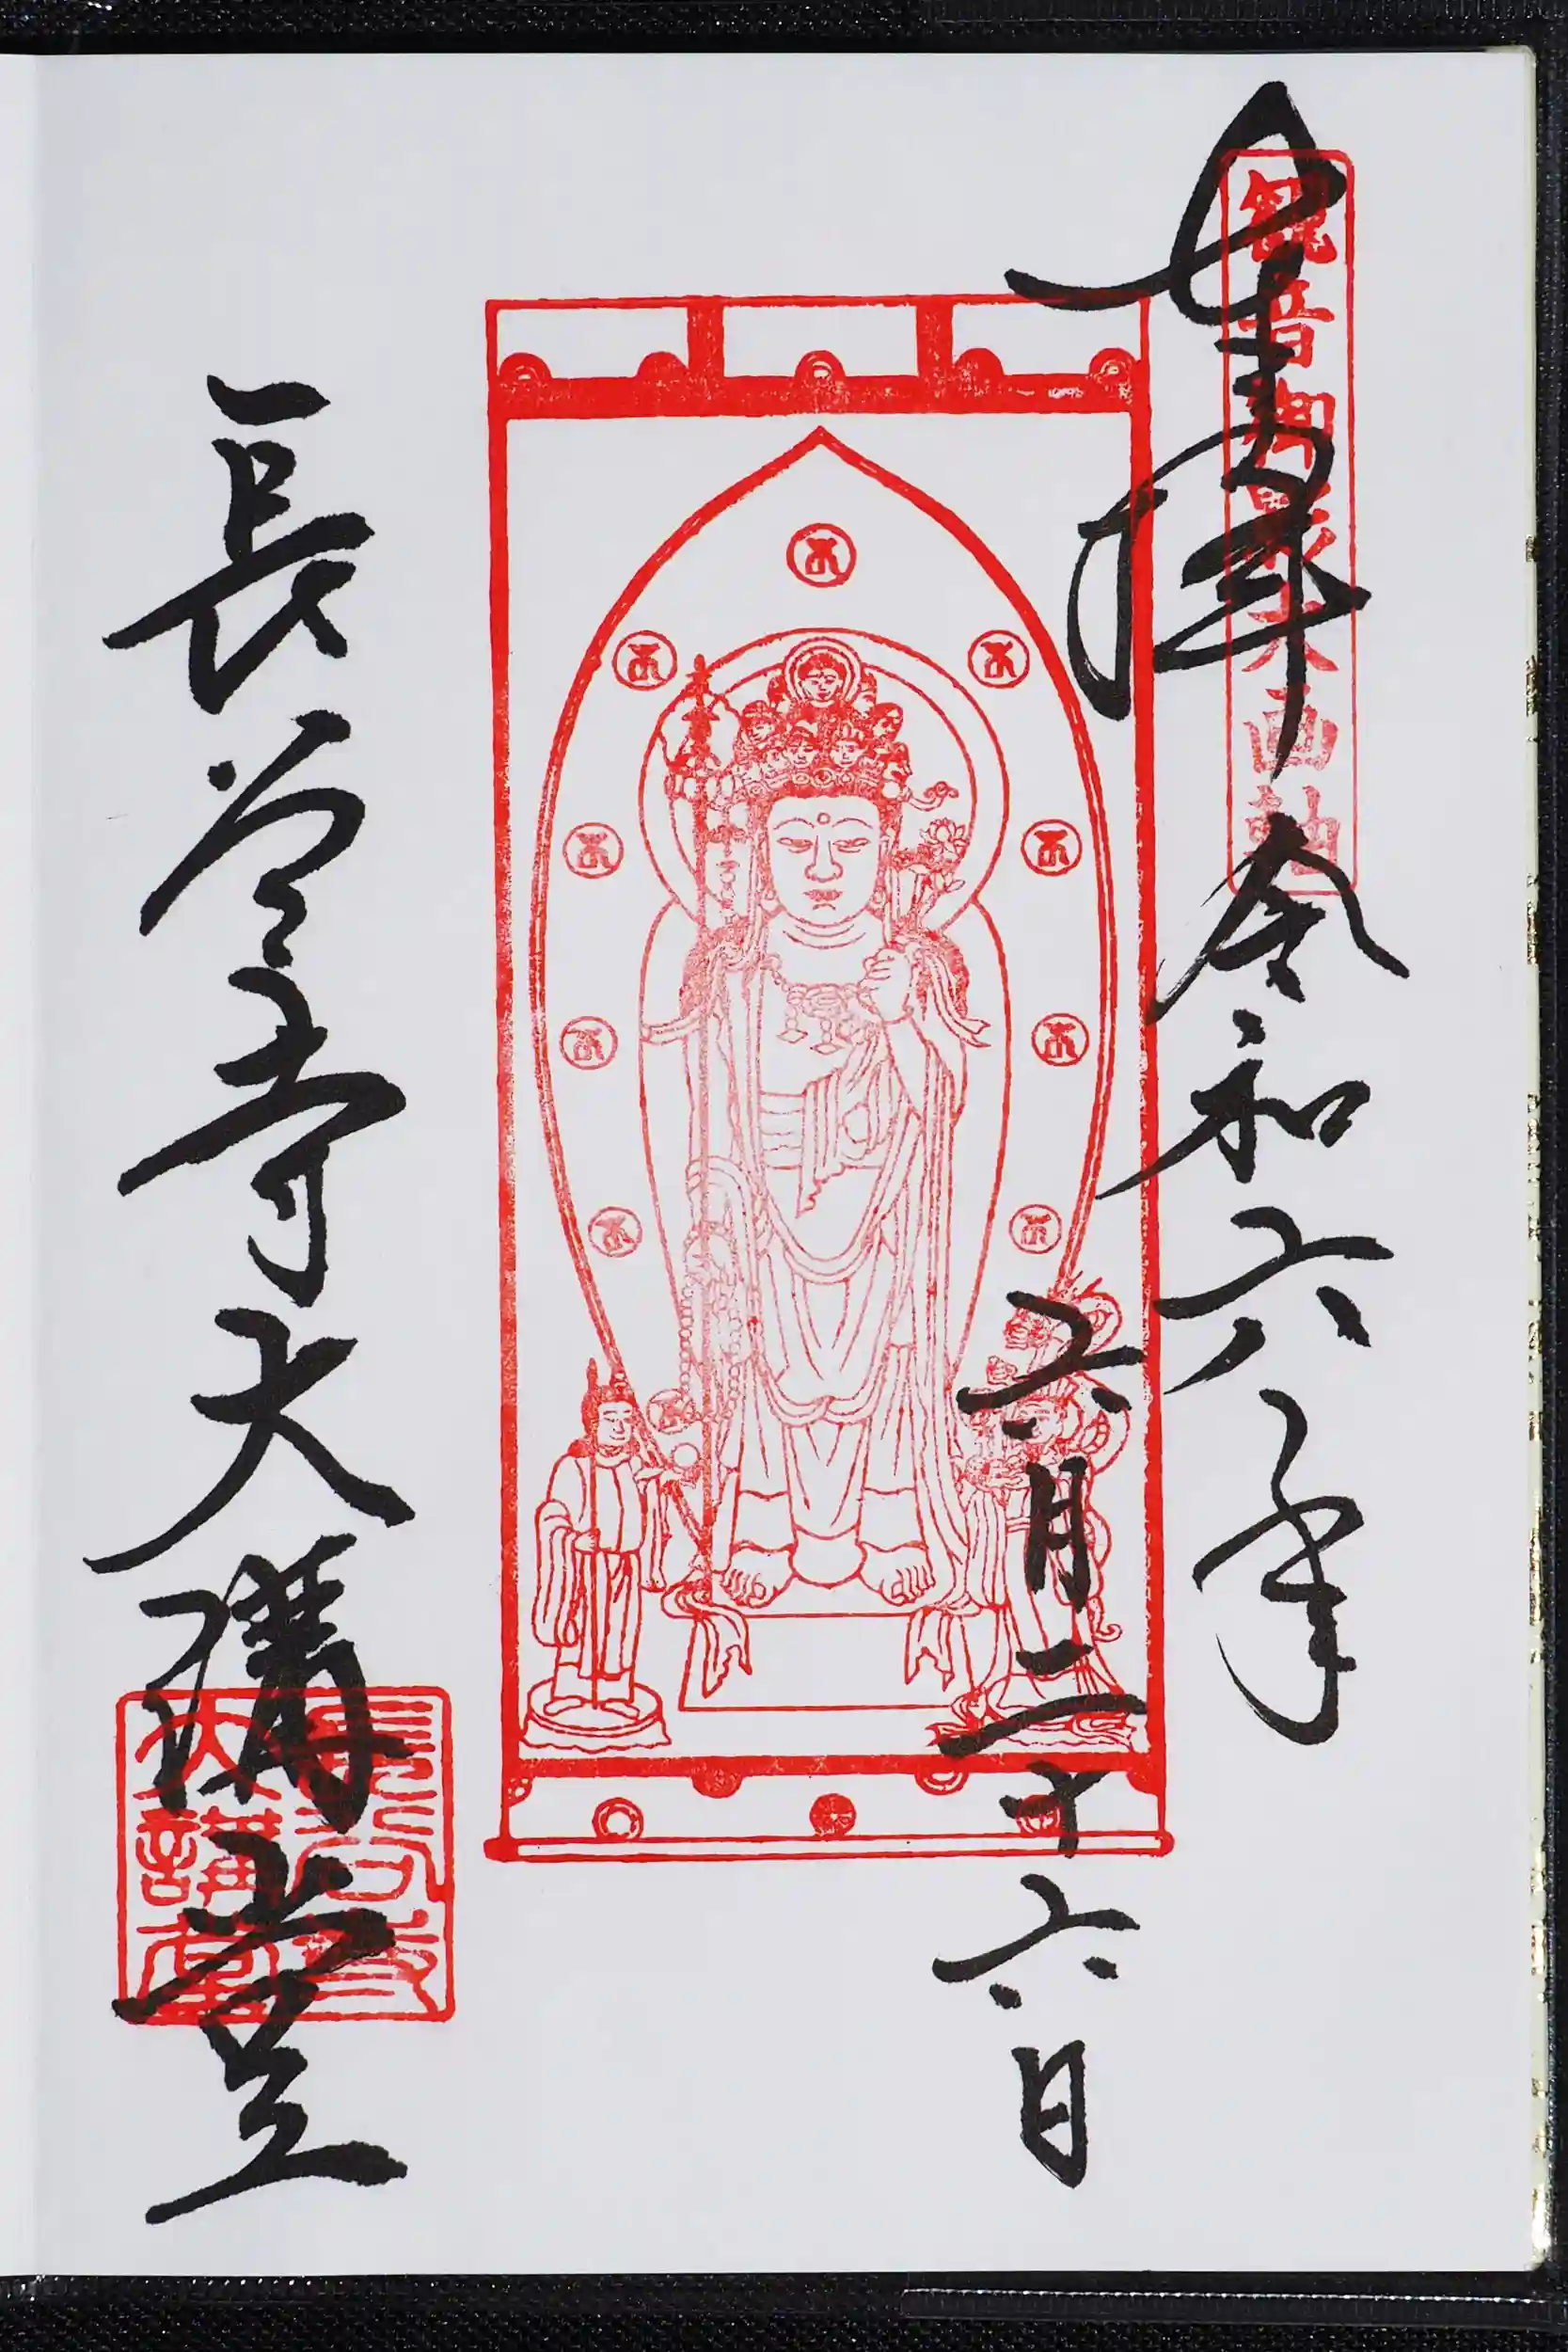 奉拝
令和六年
六月二十六日
観音御影大画軸
長谷寺大講堂
長谷寺
大講堂